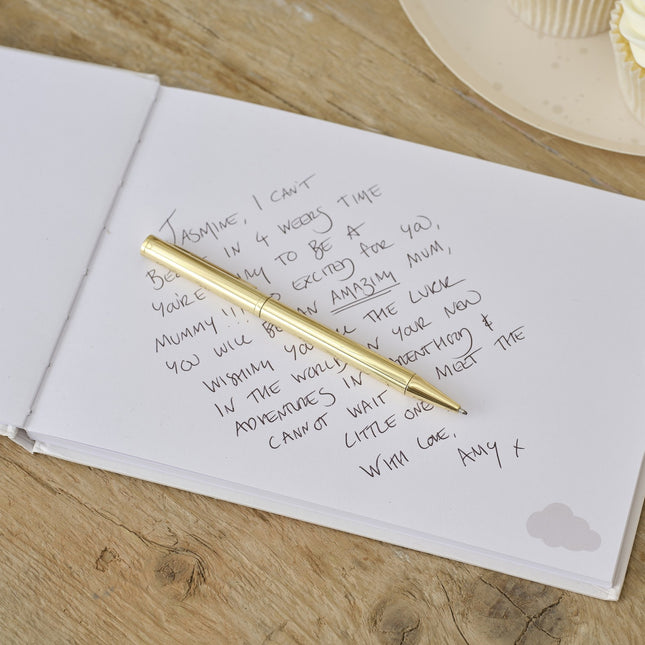 JASMINE, I CAN'T
IN 4 WEEKS TIME
YOU'RE TO BE A
MUMMY!!! EXCITED FOR YOU,
YOU WILL AN AMAZING MUM,
WISHING THE LUCK
IN THE WORLD YOUR NEW
ADVENTURES IN &
CANNOT WAIT MEET THE
LITTLE ONE
WITH LOVE,
AMY X